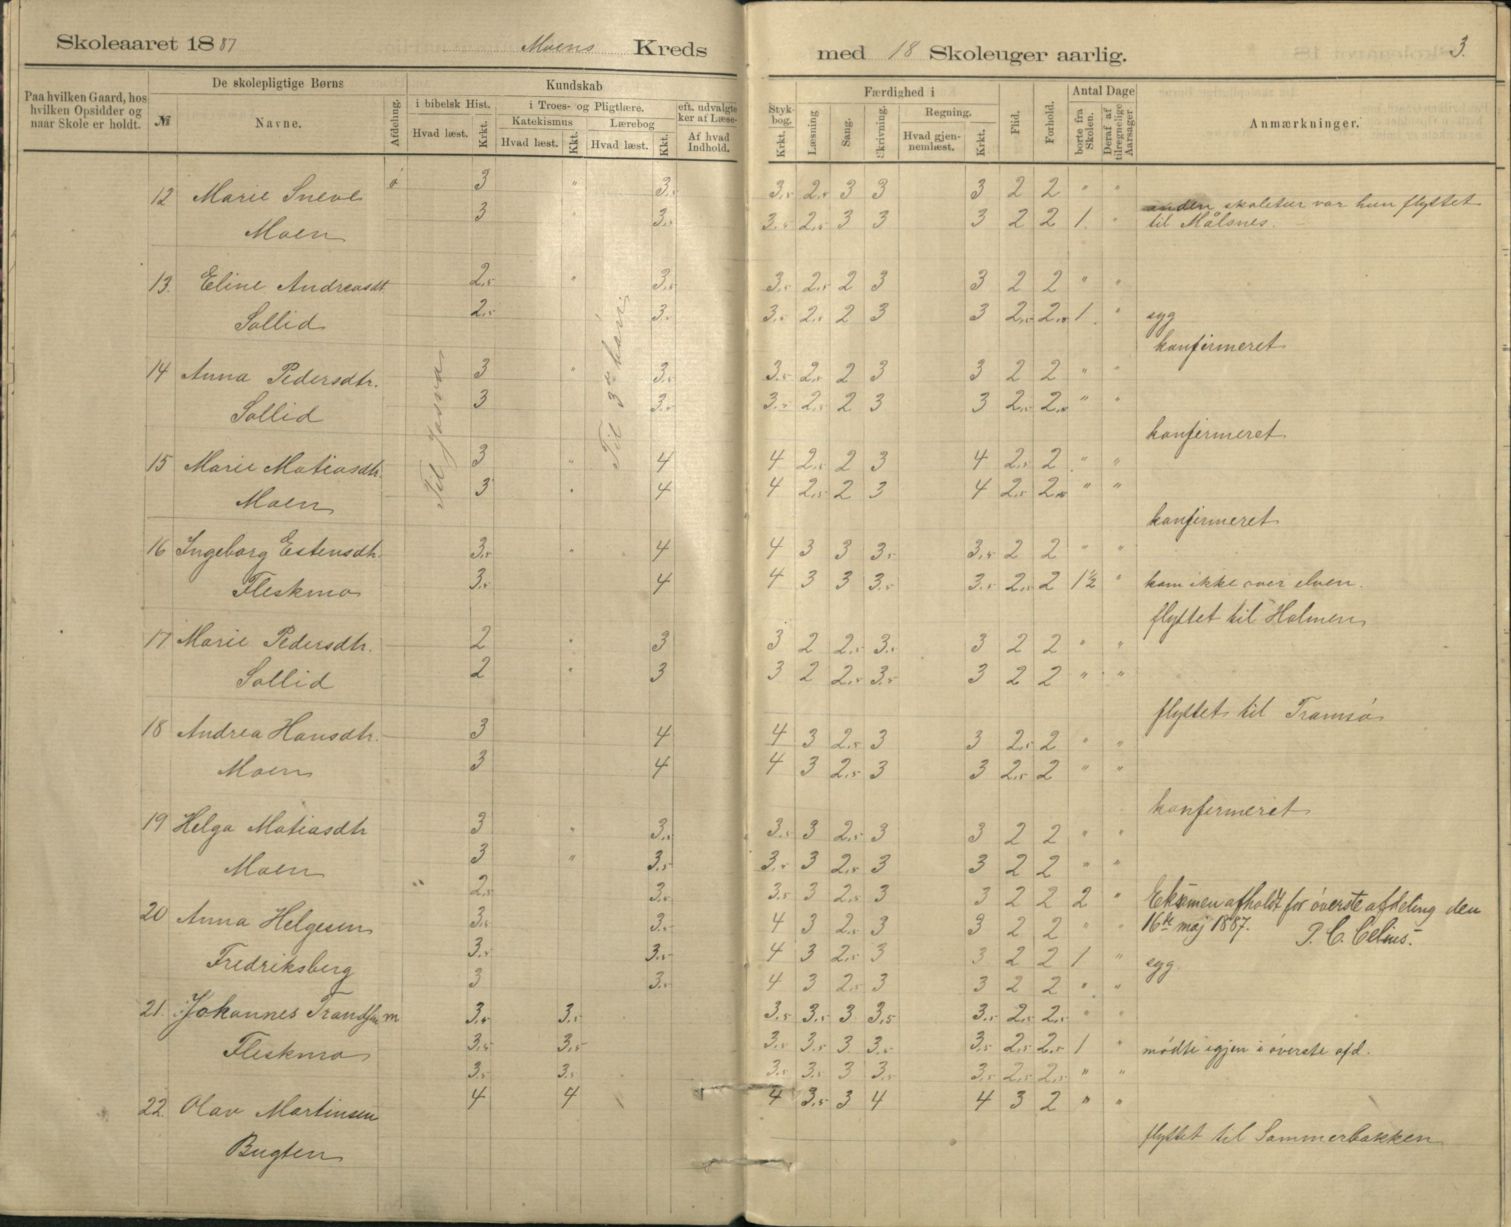 Skoleaaret 1887 Moens Kreds med 18 Skoleuger aarlig. 3.
Paa hvilken Gaard, hos hvilken Opsidder og naar Skole er holdt.
De skolepligtige Børns
№ Navne.
Afdeling.
Kundskab
i bibelsk Hist.
Hvad læst. Krkt.
i Troes- og Pligtlære.
Katekismus
Hvad læst. Kkt.
Lærebog
Hvad læst. Kkt.
eft. udvalgte Stykker af Læsebog.
Af hvad Indhold. Krkt.
Færdighed i
Læsning Sang. Skrivning.
Regning.
Hvad gjennemlæst. Krkt.
Flid. Forhold.
Antal Dage
borte fra Skolen. Deraf af tilregnelige Aarsager
Anmærkninger.
12 Marie Sneve ö 3 " 3.5 3.5 2.5 3 3 3 2 2 " "
Moen 3 3.5 3.5 2.5 3 3 3 2 2 1. " anden skoletur var hun flyttet
til Målsnes.
13. Eline Andreasdt 2.5 " 3.5 3.5 2.5 2 3 3 2 2 " "
Sollid 2.5 3.5 3.5 2.5 2 3 3 2.5 2.5 1 " syg
konfirmeret
Til Josva
Til 3die part
14 Anna Pedersdtr. 3 " 3.5 3.5 2.5 2 3 3 2 2 " "
Sollid 3 3.5 3.5 2.5 2 3 3 2.5 2.5 " "
konfirmeret
15 Marie Matiasdtr. 3 " 4 4 2.5 2 3 4 2.5 2 " "
Moen 3 " 4 4 2.5 2 3 4 2.5 2.5 " "
konfirmeret
16 Ingeborg Estensdtr. 3.5 " 4 4 3 3 3.5 3.5 2 2 " "
Fleskmo 3.5 4 4 3 3 3.5 3.5 2.5 2 1½ " kom ikke over elven.
flyttet til Holmen
17 Marie Pedersdtr. 2 " 3 3 2 2.5 3.5 3 2 2 " "
Sollid 2 " 3 3 2 2.5 3.5 3 2 2 " "
flyttet til Tromsö
18 Andrea Hansdtr. 3 4 4 3 2.5 3 3 2.5 2 " "
Moen 3 4 4 3 2.5 3 3 2.5 2 " "
konfirmeret
19 Helga Matiasdtr 3 " 3.5 3.5 3 2.5 3 3 2 2 " "
Moen 3 " 3.5 3.5 3 2.5 3 3 2 2 " "
" 2.5 3.5 3.5 3 2.5 3 3 2 2 2 " Eksamen afholdt for överste afdeling den
20 Anna Helgesen 3.5 3.5 4 3 2.5 3 3 2 2 " " 16de maj 1887. P. C. Celius.
Fredriksberg 3.5 3.5 4 3 2.5 3 3 2 2 1 " syg.
3 3.5 4 3 2.5 3 3 2 2 " "
21. Johannes Trondsen m 3.5 3.5 3.5 3.5 3 3.5 3.5 2.5 2.5 " "
Fleskmo 3.5 3.5 3.5 3.5 3 3.5 3.5 2.5 2.5 1 " mödte igjen i överste afd.
3.5 3.5 3.5 3.5 3 3.5 3.5 2.5 2.5 " "
22 Olav Martinsen 4 4 4 3.5 3 4 4 3 2 " "
Bugten
flyttet til Sommerbakken